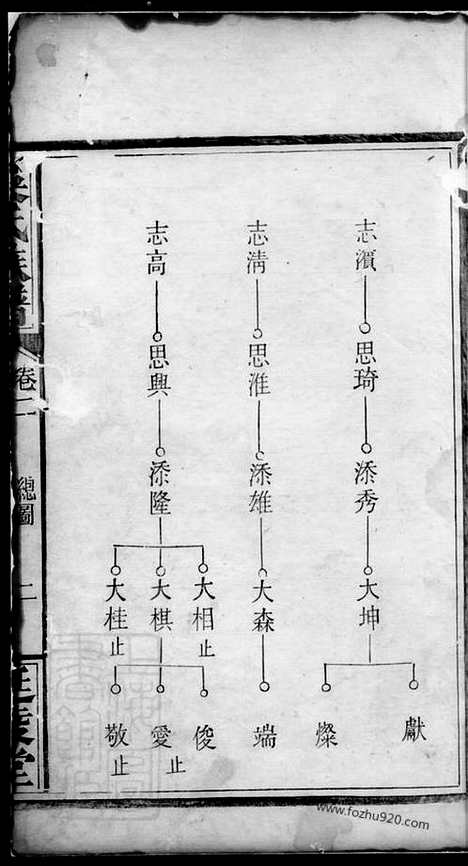 志濱
思琦
添秀
大坤
獻
燦
志淸
思淮
添雄
大森
端
志高
思興
添隆
大相止
大棋
大桂止
俊
愛止
敬止
氏族譜
卷二
總圖
二
www.fozhu920.com